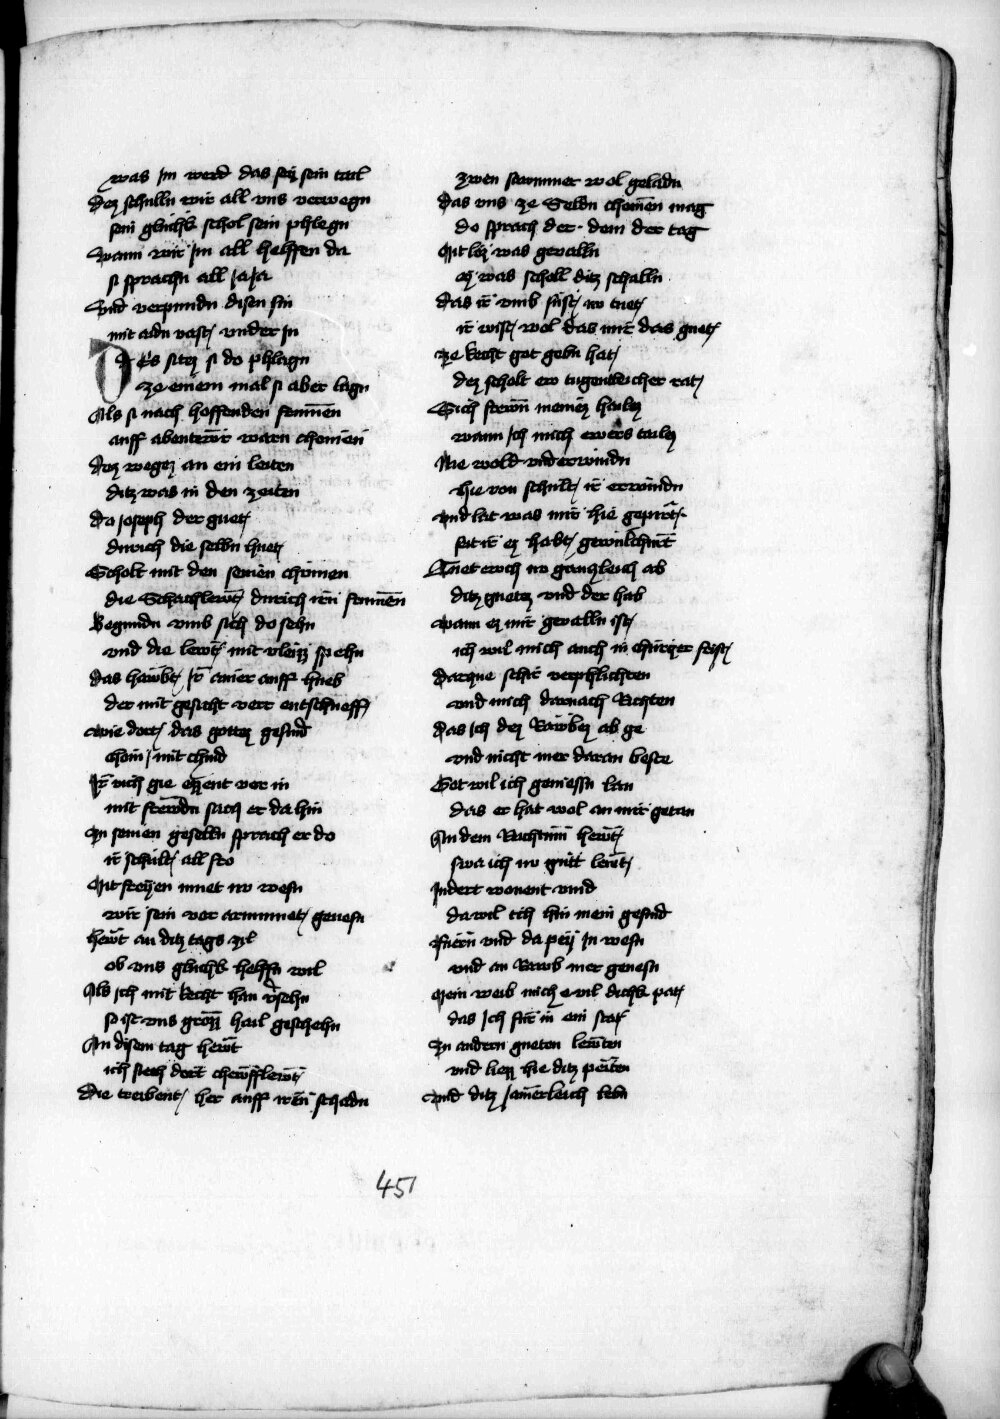 was jm werd das sey sein tail
Dez schulln wir all vns verwegn
sein glückh schol sein phlegn
wann wir jm all helffen da
si sprachn all ja ja
Vnd verpundn disen sin
mit aidn vasst vnder in
Des sitez si do phlagn
ze einem mal si aber lagn
Als si nach hoffenden frumen
auff abentewr warn chomen
Des weges an ein leiten
ditz was in den zeiten
do joseph der guet
durich die selbn huet
Scholt mit den seinen chomen
die Schachlewt durich iren frumen
Begundn vmb sich do sehn
vnd die lewt mit vleizz spehn
das hawbt jr ainer auff hueb
der mit gesicht verr entschueff
wie dort das gottez gesind
choim mit chind
Er vich gie ezzent vor in
mit frewdn sach er da hin
Zu seinen geselln sprach er do
ir schult all fro
Mit frewen muet nu wesn
wir sein vor armuet genesn
hewt an ditz tags zil
ob vns glückh helffn wil
Als ich mit Recht han v̈sehn
so ist vns grozz hail geschehn
An disem tag hewt
ich siech dort chewfflewt
Die treibent her auff iren schadn
zwen sawmer wol geladn
das vns ze Seldn chomen mag
do sprach der dem der tag
Mit loz was gevalln
ez was scholl ditz schalln
das ir vmb sust nu tuet
ir wist wol das mir das guet
ze Recht got gebn hat
dez scholt ew tugentleicher rat
Sich frewn meinez hailez
wann ich mich ewers tailez
Nie wold vnderwindn
hie von schult ir erwindn
vnd lat was mir hie gepürt
seit ir ez habt gewilchürt
Tuet ewch nu gantzleich ab
ditz guetez vnd der hab
wann ez mir gevalln ist
ich wil mich auch in churtzer frist
Darque schir verphlichten
vnd mich darnach Richten
das ich dez Rawbez ab ge
vnd nicht mer daran beste
Got wil ich geniessn lan
das er hat wol an mir getan
An dem Reichtum hewt
swa ich nu guet lewt
Indert wonent vind
da wil ich hin mein gesind
Fuern vnd da pey in wesn
vnd an Rawb mer genesn
Mein weib mich e vil dickh pat
das ich fur in ein stat
Zu andern gueten lewten
vnd liezz hie ditz pewten
vnd ditz jamerleich lebn
451